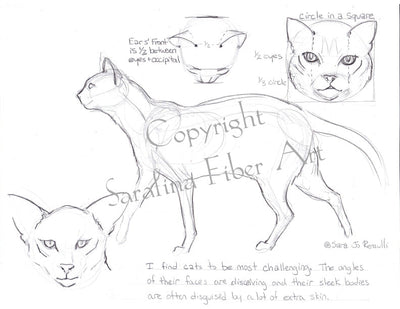 Ears' Front
is ½ between
eyes + occipital
½
circle in a square
½ eyes
⅓ circle
Copyright
Saralina Fiber Art
©Sara J.
I find cats to be most challenging. The angles
of their faces are disceiving and their sleek bodies
are often disguised by a lot of extra skin.